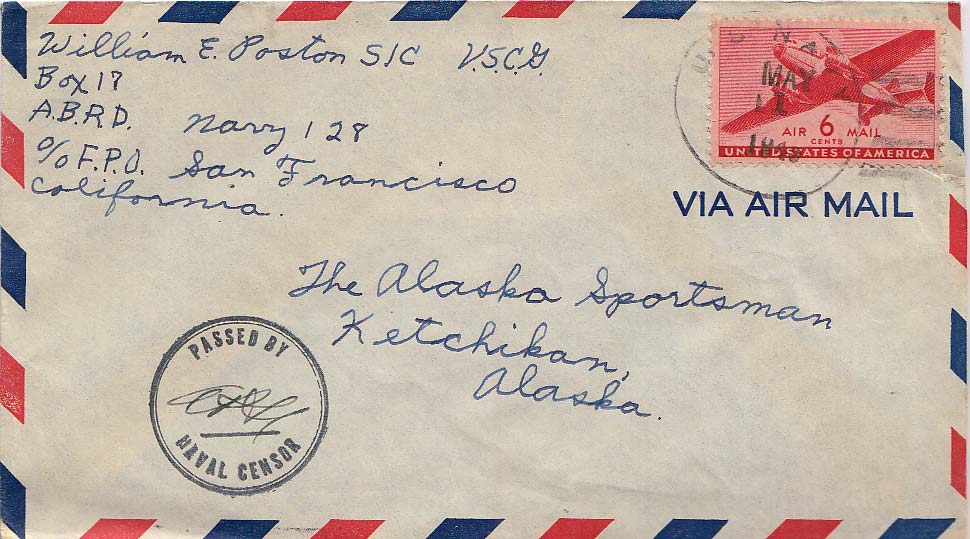 William E. Poston S1C U.S.C.G.
Box 17
A.B.R.D. Navy 128
c/o F.P.O. San Francisco
California.
U.S. NA
MAY
AIR 6 MAIL
CENTS
UNITED STATES OF AMERICA
VIA AIR MAIL
The Alaska Sportsman
Ketchikan,
Alaska.
PASSED BY
NAVAL CENSOR